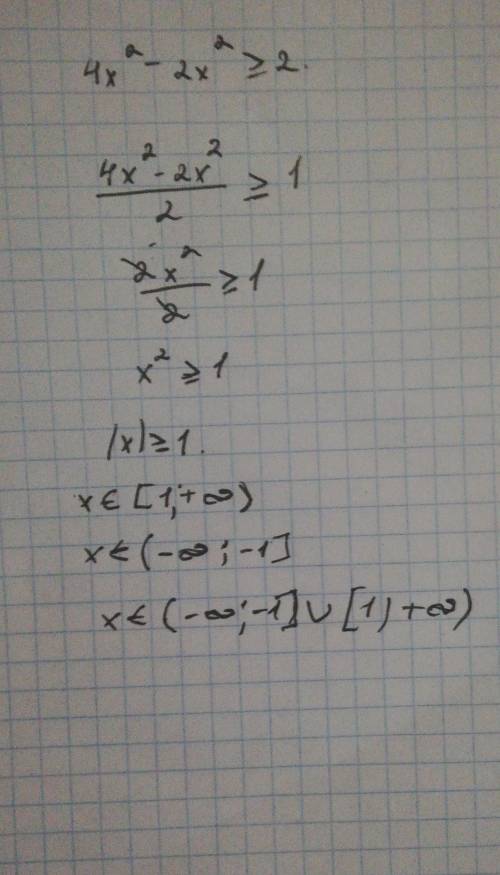 4x² - 2x² ≥ 2.
(4x² - 2x²)/2 ≥ 1
2x²/2 ≥ 1
x² ≥ 1
|x| ≥ 1.
x ∈ [1; +∞)
x ∈ (-∞; -1]
x ∈ (-∞; -1] ∪ [1; +∞)